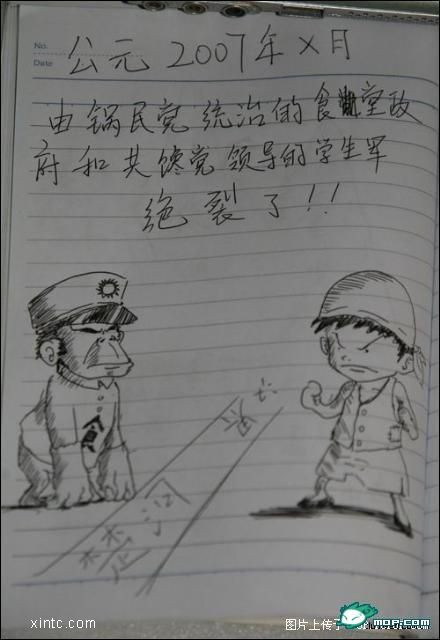 No.
Date
公元2007年X月
由锅民党统治的食堂政
府和共馋党领导的学生军
绝裂了!!
食
楚河
xintc.com
图片上传于
MOP.COM